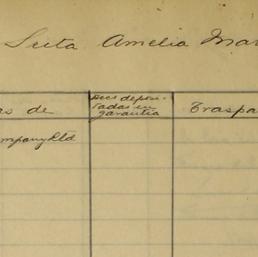 Srita Amelia Mar
as de
Docs deposi-
tadas en
garantia
Traspa
mpany Ltd